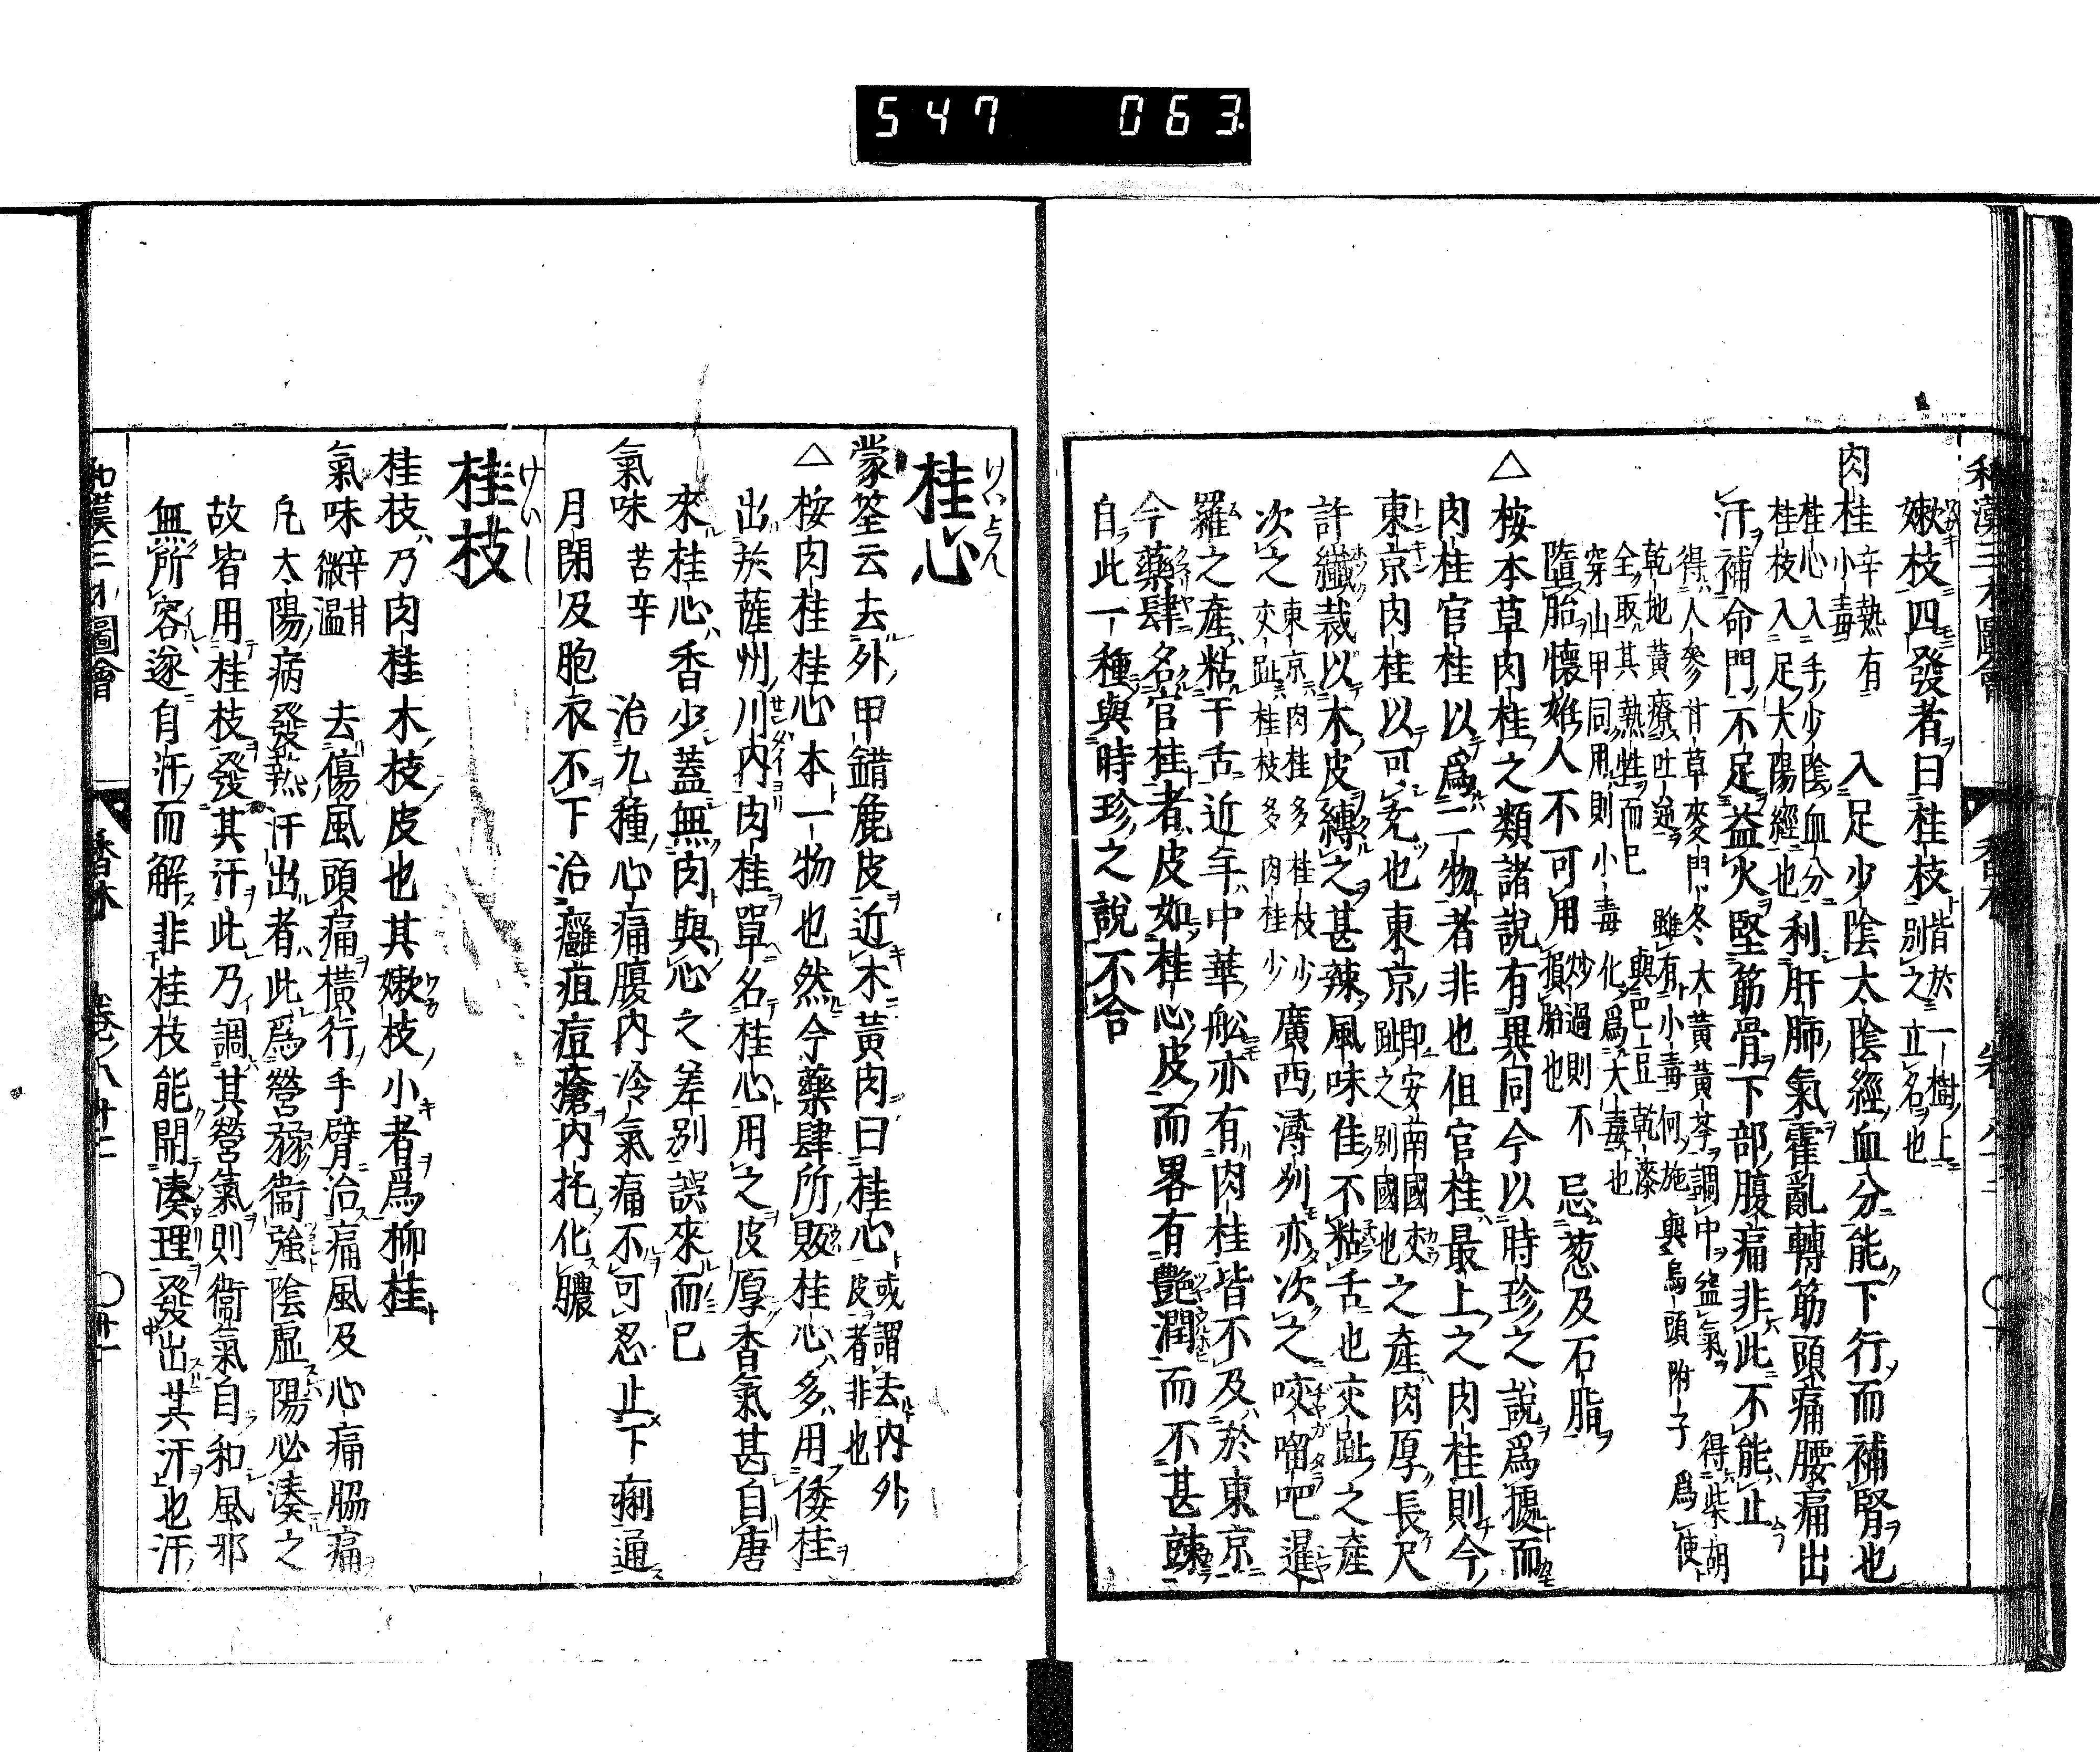 547 063
和漢三才圖會
香木
嫩枝四發者曰桂枝皆於一樹上
別之立名也
肉桂辛熱有
小毒
入足少陰太陰經血分能下行而補腎也
桂心入手少陰血分
桂枝入足大陽經也
利肝肺氣霍亂轉筋頭痛腰痛出
汗補命門不足益火堅筋骨下部腹痛非此不能止
得人參甘草麥門冬大黃黃芩調中益氣得柴胡
乾地黃療吐逆
雖有小毒何施與烏頭附子爲使
全取其熱性而已
與巴豆乾漆
穿山甲同用則小毒
化爲大毒也
忌葱及石脂
墮胎懷妊人不可用
炒過則不
損胎也
△桉本草肉桂之類諸說有異同今以時珍之說爲據而
肉桂官桂以爲二物者非也但官桂最上之肉桂則今
東京肉桂以可充也東京
即安南國交
趾之別國也
之產肉厚長尺
許纖裁以木皮縛之甚辣風味佳不粘舌也交趾之產
次之
東京肉桂多桂枝少
交趾桂枝多肉桂少
廣西潯州亦次之咬𠺕吧暹
羅之產粘于舌近年中華舩亦有肉桂皆不及於東京
今藥肆名官桂者皮如桂心皮而畧有艷潤而不甚辣
自此一種與時珍之說不合
けいしん
桂心
蒙筌云去外甲錯麁皮近木黃肉曰桂心
或謂去內外
皮者非也
△桉肉桂桂心本一物也然今藥肆所販桂心多用倭桂
出於薩州川內肉桂單名桂心用之皮厚香氣甚自唐
來桂心香少蓋無肉與心之差別誤來而已
氣味苦辛治九種心痛腹內冷氣痛不可忍止下痢通
月閉及胞衣不下治癰疽痘瘡內托化膿
けいし
桂枝
桂枝乃肉桂木枝皮也其嫩枝小者爲柳桂
氣味
辛甘
微溫
去傷風頭痛橫行手臂治痛風及心痛脇痛
凡太陽病發熱汗出者此爲營弱衞強陰虛陽必湊之
故皆用桂枝發其汗此乃調其營氣則衞氣自和風邪
無所容遂自汗而解非桂枝能開湊理發出其汗也汗
和漢三才圖會
香木 卷八十二 〇廿一